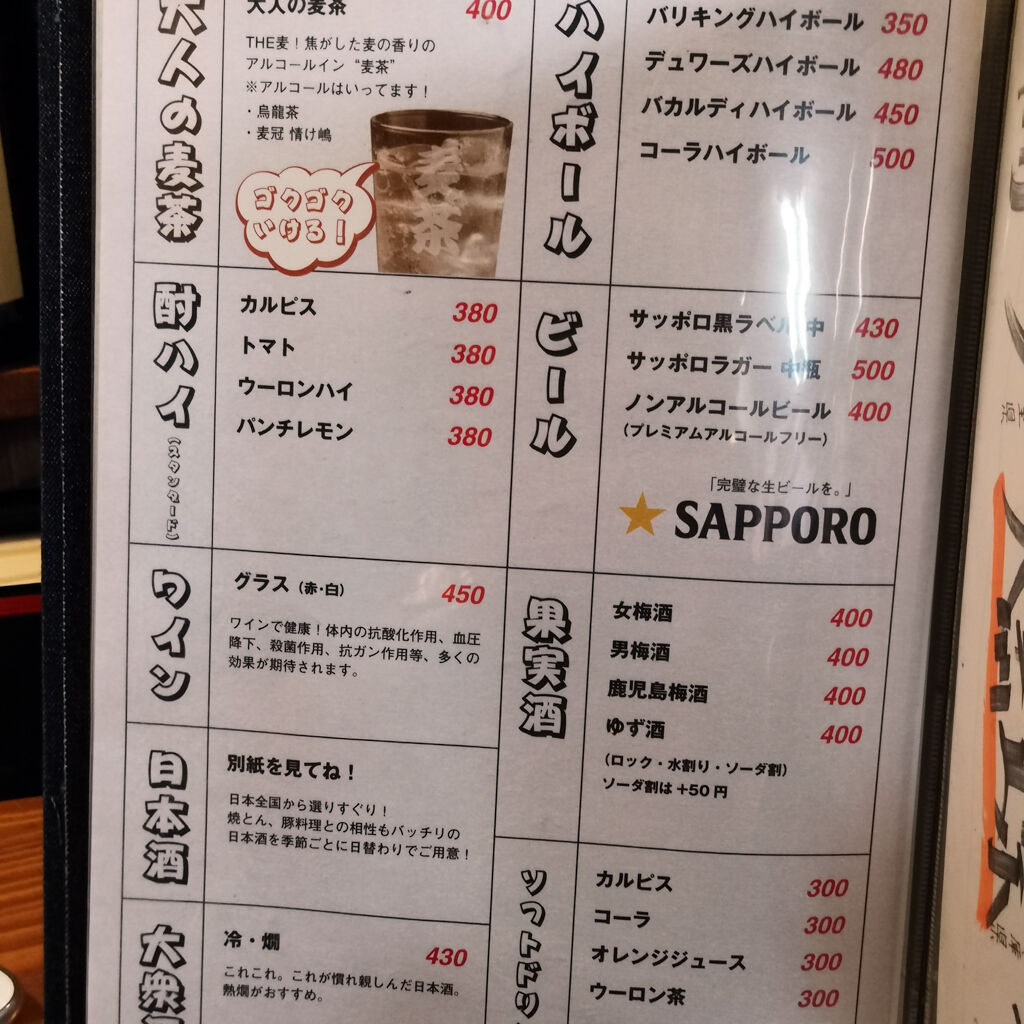 大人の麦茶
大人の麦茶 400
THE麦！焦がした麦の香りの
アルコールイン“麦茶”
※アルコールはいってます！
・烏龍茶
・麦冠 情け嶋
麦茶
ゴクゴク
いける！
酎ハイ
（スタンダード）
カルピス 380
トマト 380
ウーロンハイ 380
パンチレモン 380
ワイン
グラス（赤・白） 450
ワインで健康！体内の抗酸化作用、血圧
降下、殺菌作用、抗ガン作用等、多くの
効果が期待されます。
日本酒
別紙を見てね！
日本全国から選りすぐり！
焼とん、豚料理との相性もバッチリの
日本酒を季節ごとに日替わりでご用意！
大衆
冷・燗 430
これこれ。これが慣れ親しんだ日本酒。
熱燗がおすすめ。
ハイボール
バリキングハイボール 350
デュワーズハイボール 480
バカルディハイボール 450
コーラハイボール 500
ビール
サッポロ黒ラベル 中 430
サッポロラガー 中瓶 500
ノンアルコールビール 400
（プレミアムアルコールフリー）
「完璧な生ビールを。」
SAPPORO
果実酒
女梅酒 400
男梅酒 400
鹿児島梅酒 400
ゆず酒 400
（ロック・水割り・ソーダ割）
ソーダ割は＋50円
ソフトドリ
カルピス 300
コーラ 300
オレンジジュース 300
ウーロン茶 300